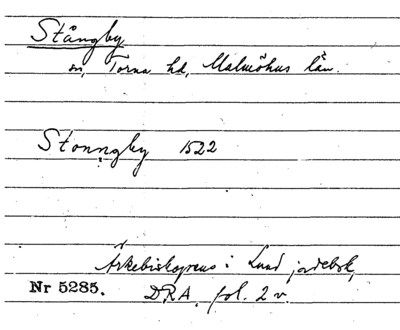 Stångby
sn, Torna hd, Malmöhus län.
Stonngby 1522
Ärkebiskopens i Lund jordebok,
Nr 5285. DRA. fol. 2 v.